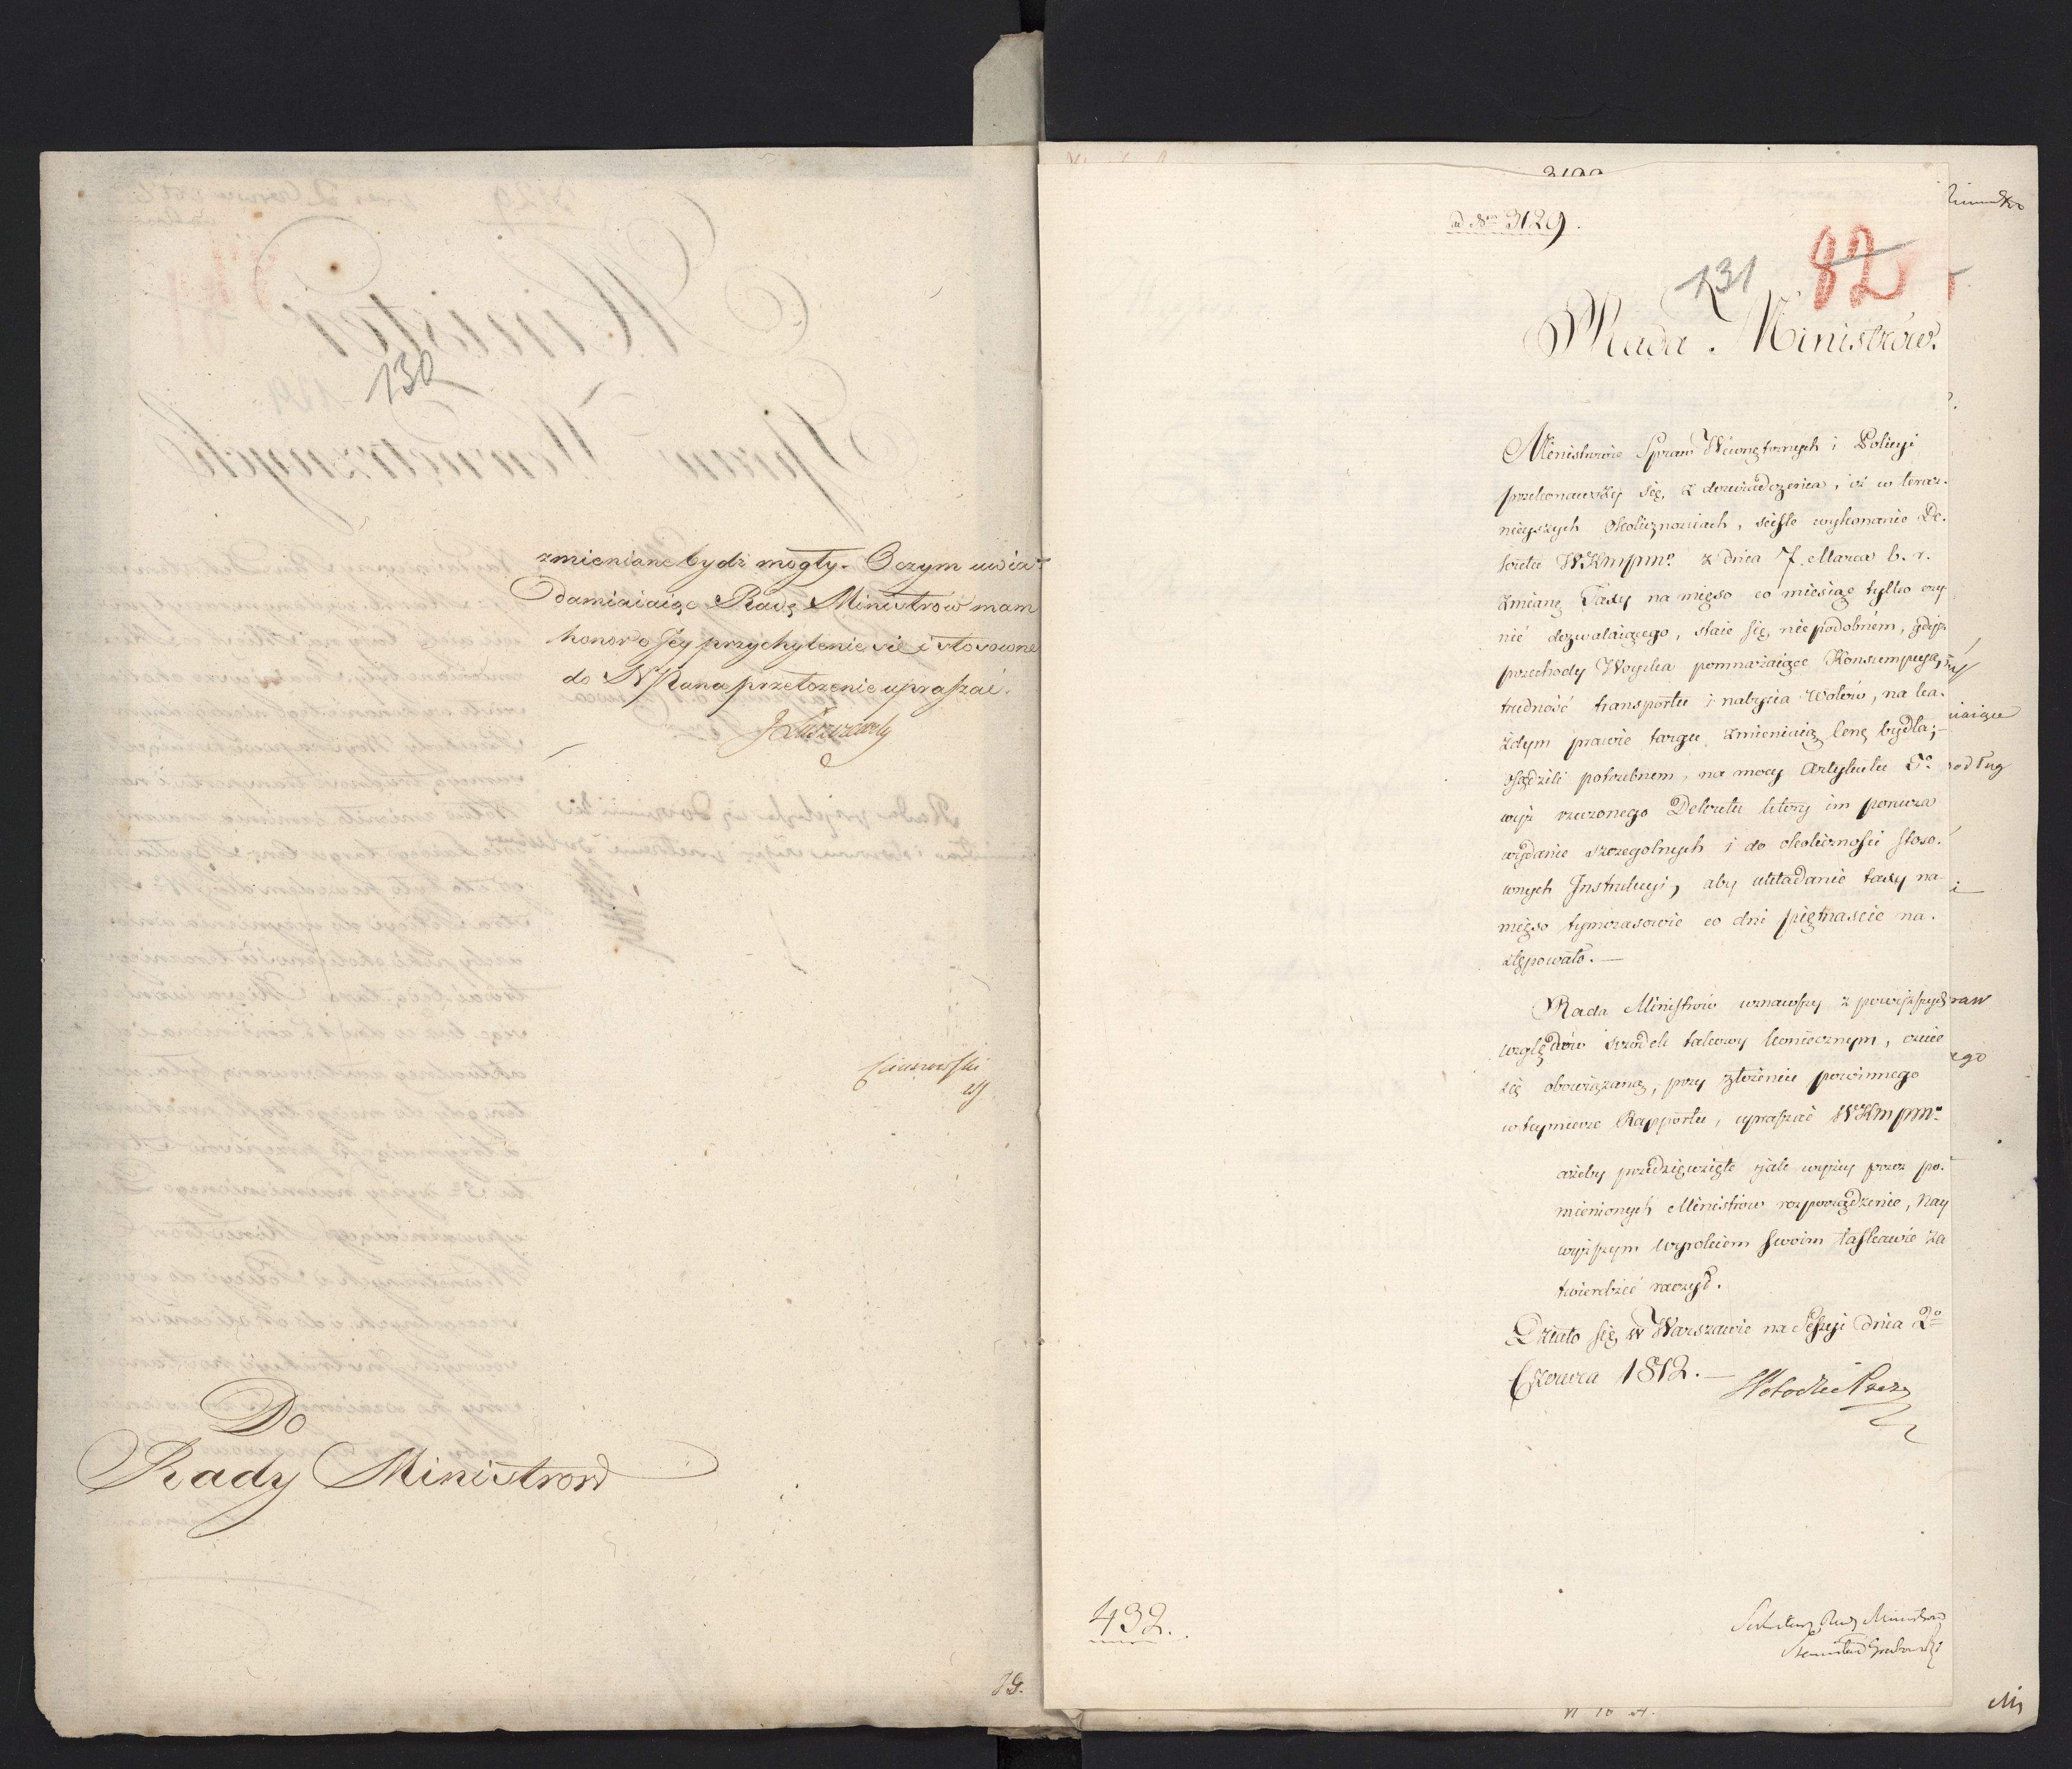 130
zmieniane bydź mogły. O czym uwia-
damiaiąc Radę Ministrow mam
honor o Jey przychylenie się i stosowne
do N Pana przełożenie upraszać.
J Łuszczewski
Do
Rady Ministrow
ad Nrm 3129.
131
82
Rada Ministrów.
Ministrowie Spraw Wewnętrznych i Policyi
przekonawszy się, z doświadczenia, iż w teraz-
nieyszych okolicznościach, ścisłe wykonanie De-
kretu WKmpmo z dnia 7. Marca b. r.
zmianę Taxy na mięso co miesiąc tylko czy-
nić dozwalaiącego, staie się niepodobném, gdyż
przechody Woyska pomnażaiące Konsumpcyą,
trudność transportu i nabycia wołów, na ka-
żdym prawie targu zmieniaią cenę bydła;
osądzili potrzebnem, na mocy Artykułu 5o
wyż rzeczonego Dekretu który im porucza
wydanie szczegolnych i do okoliczności stoso-
wnych Instrukcyi, aby układanie taxy na
mięso tymczasowie co dni piętnascie na-
stępowało. —
Rada Ministrów uznawszy z powyższych
względów środek takowy koniecznym, czuie
się obowiązaną, przy złożeniu powinnego
w tey mierze Rapportu, upraszać WKmpmo
ażeby przedsięwzięte jak wyżey przez po-
mienionych Ministrow rozporządzenie, Nay
wyższym wyrokiem swoim łaskawie za
twierdzić raczył.
Działo się w Warszawie na Sessyi dnia 2o
Czerwca 1812. —
432.
Sekretarz Rady Ministrow
Stanisław Grabowski